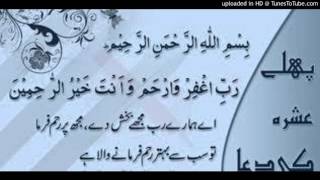 uploaded in HD @ TunesToTube.com
بِسْمِ اللهِ الرَّحْمٰنِ الرَّحِيْمِ
رَبِّ اغْفِرْ وَارْحَمْ وَاَنْتَ خَيْرُ الرّٰحِمِيْنَ
اے ہمارے رب مجھے بخش دے، مجھ پر رحم فرما
تو سب سے بہتر رحم فرمانے والا ہے
پہلے
عشرہ
کی دعا